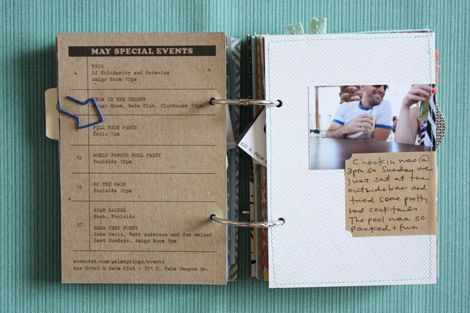 MAY SPECIAL EVENTS
DJ Solidarity and
Amigo Room 10pm
IN THE DESERT
Room, Swim Club, Clubhouse
FULL MOON PARTY
Patio 7pm
WORLD FAMOUS POOL PARTY
Poolside 12pm
SWIM
Poolside 12pm
27
ADAM
Room, Poolside
Jake Davis, Matt Anderson and Joe Nelson
Last Sundays, Amigo Room 9pm
acehotel.com/palmsprings/events
Ace Hotel & Swim Club - 701 E. Palm Canyon Dr.
Check in was @
3pm so Sunday we
just sat at the
outside bar and
tried some pretty
rad cocktails.
The pool was so
packed + fun.